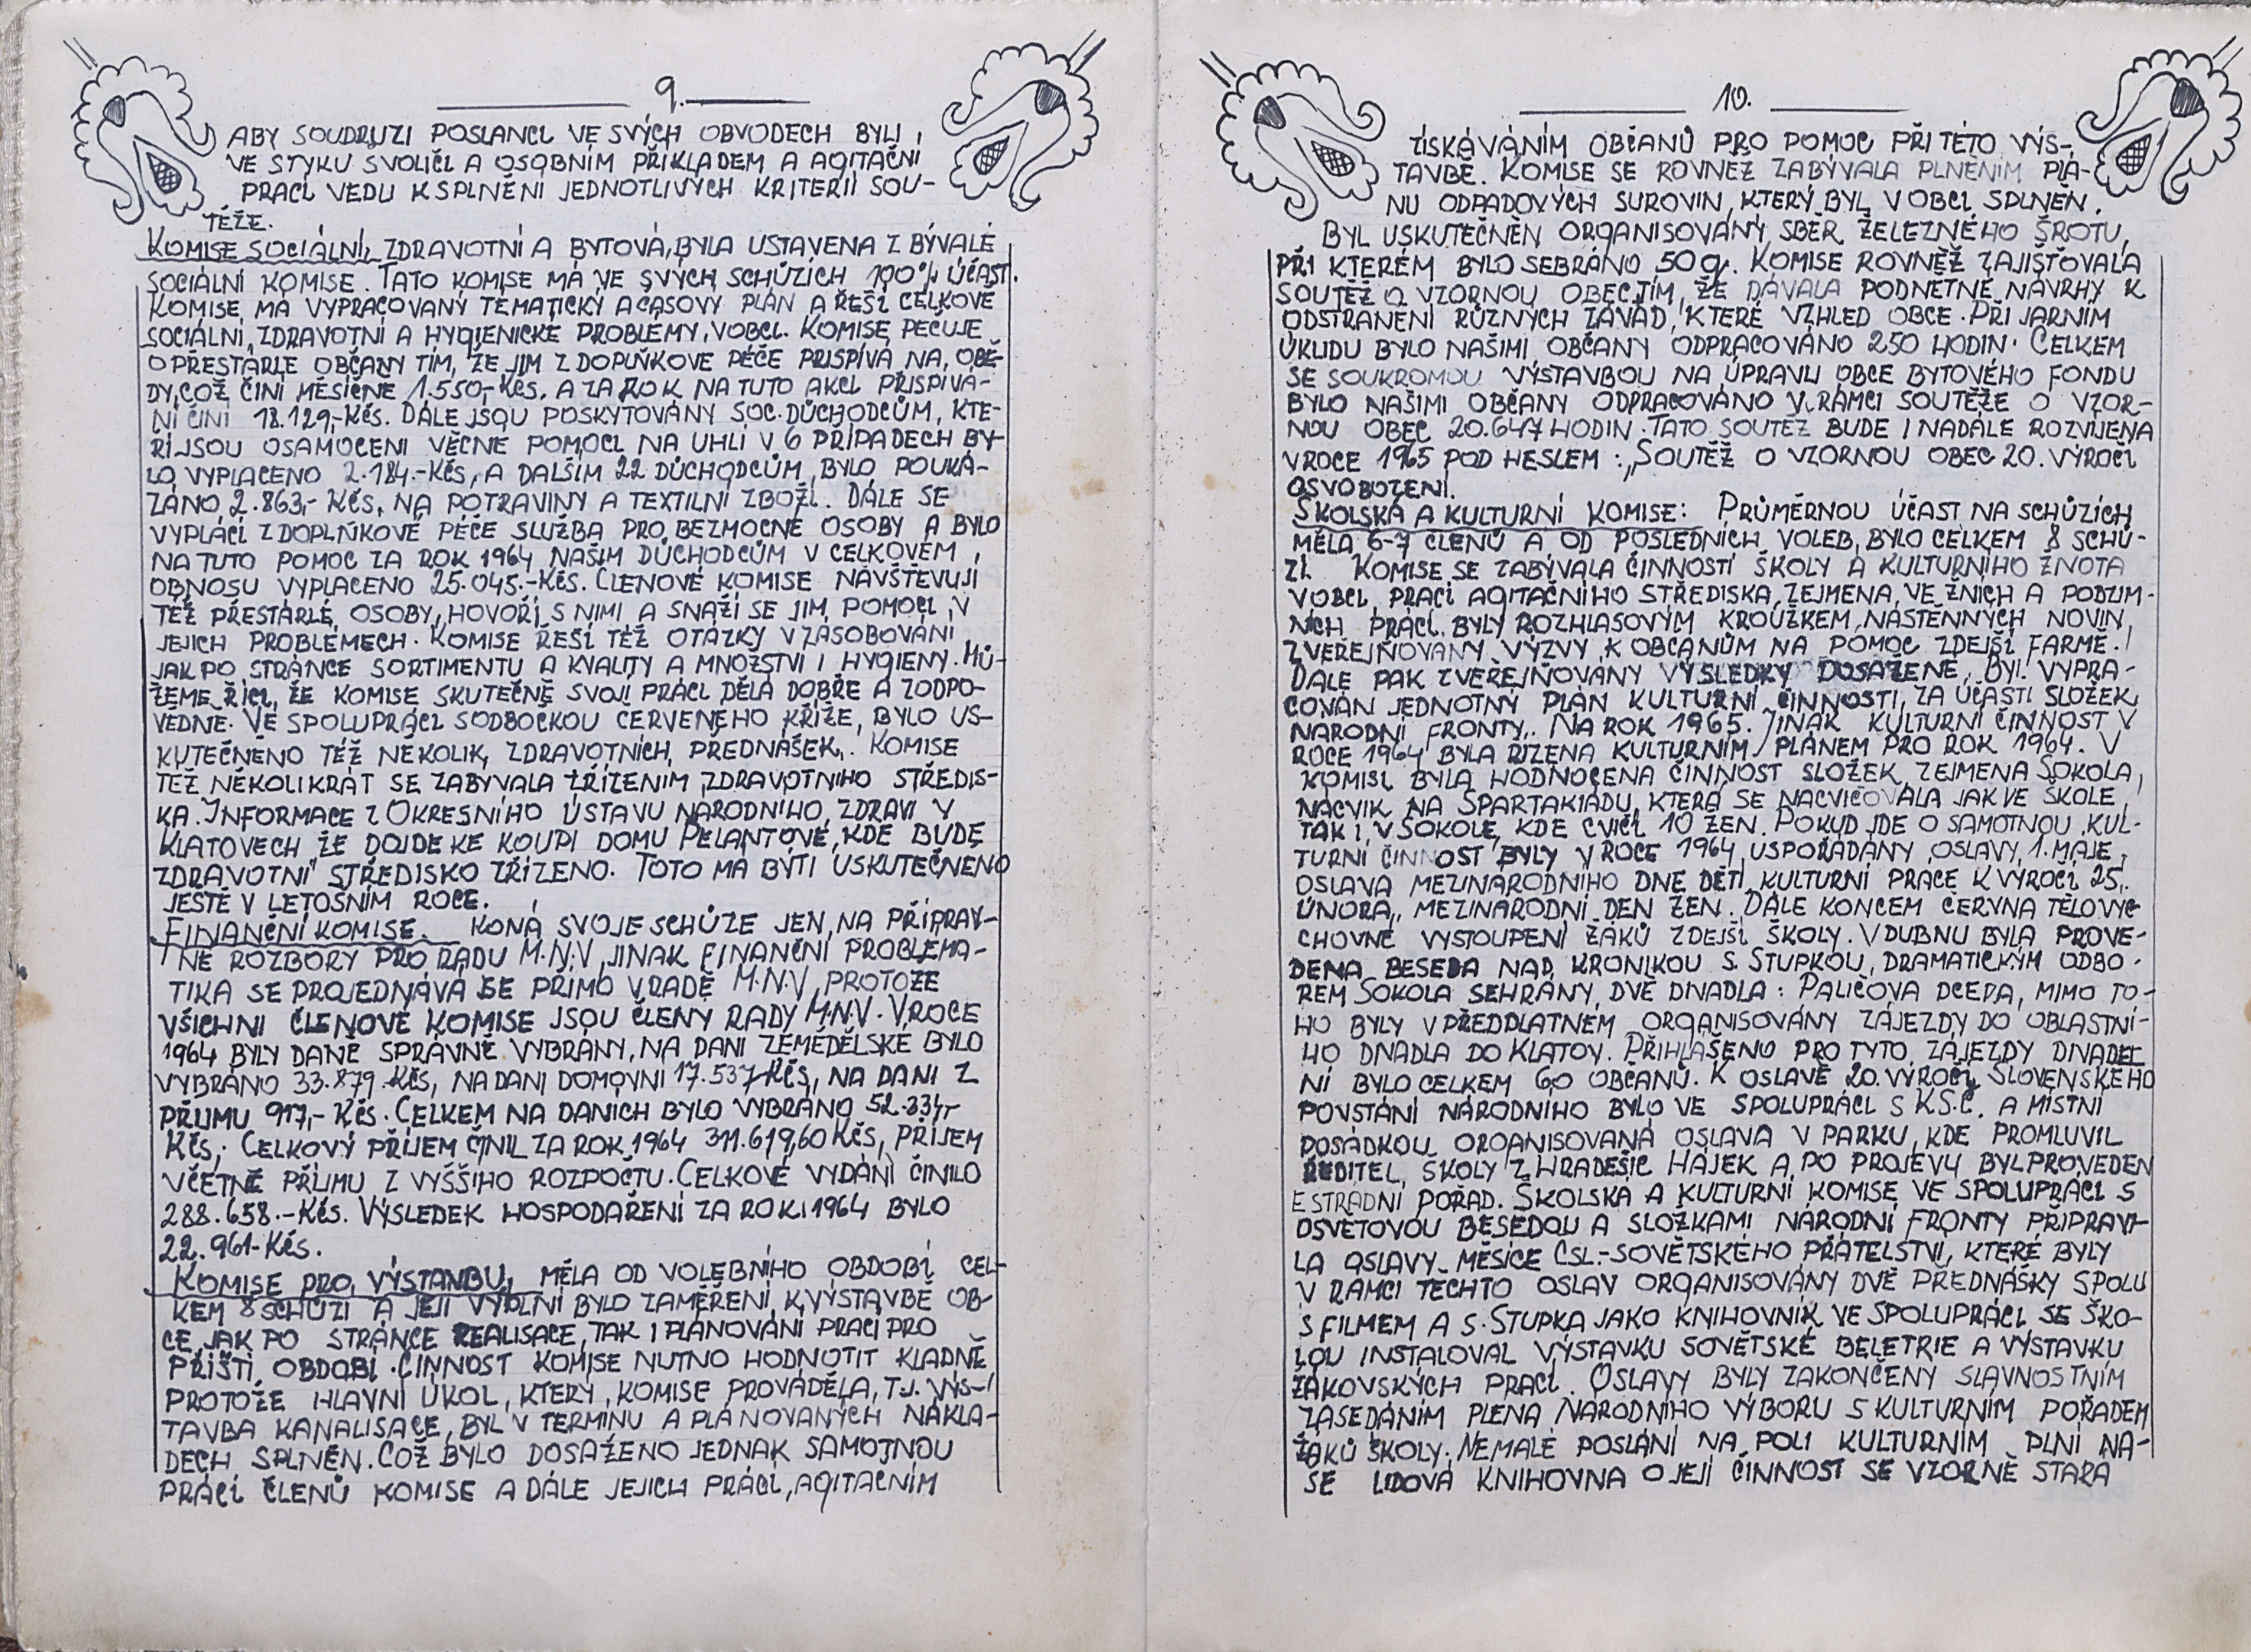 9.
ABY SOUDRUZI POSLANCI VE SVÝCH OBVODECH BYLI
VE STYKU SVOLIČI A OSOBNÍM PŘÍKLADEM A AGITAČNÍ
PRACÍ VEDLI K SPLNĚNÍ JEDNOTLIVÝCH KRITERIÍ SOU-
TĚŽE.
KOMISE SOCIÁLNÍ, ZDRAVOTNÍ A BYTOVÁ, BYLA USTAVENA Z BÝVALÉ
SOCIÁLNÍ KOMISE. TATO KOMISE MÁ VE SVÝCH SCHŮZÍCH 100% ÚČAST.
KOMISE MÁ VYPRACOVANÝ TÉMATICKÝ A ČASOVÝ PLÁN A ŘEŠÍ CELKOVĚ
SOCIÁLNÍ, ZDRAVOTNÍ A HYGIENICKÉ PROBLÉMY V OBCI. KOMISE PEČUJE
O PŘESTÁRLÉ OBČANY TÍM, ŽE JIM Z DOPLŇKOVÉ PÉČE PŘISPÍVÁ NA OBĚ-
DY, COŽ ČINÍ MĚSÍČNĚ 1.550,-KČS. A ZA ROK NA TUTO AKCI PŘISPÍVÁ-
NÍ ČINÍ 18.129,-KČS. DÁLE JSOU POSKYTOVÁNY SOC. DŮCHODCŮM, KTE-
ŘÍ JSOU OSAMOCENI VĚCNÉ POMOCI NA UHLÍ V 6 PŘÍPADECH BY-
LO VYPLACENO 2.184.-KČS, A DALŠÍM 22 DŮCHODCŮM, BYLO POUKÁ-
ZÁNO 2.863,- KČS, NA POTRAVINY A TEXTILNÍ ZBOŽÍ. DÁLE SE
VYPLÁCÍ Z DOPLŇKOVÉ PÉČE SLUŽBA PRO BEZMOCNÉ OSOBY A BYLO
NA TUTO POMOC ZA ROK 1964 NAŠIM DŮCHODCŮM V CELKOVÉM
OBNOSU VYPLACENO 25.045.-KČS. ČLENOVÉ KOMISE NAVŠTĚVUJÍ
TÉŽ PŘESTÁRLÉ OSOBY, HOVOŘÍ S NIMI A SNAŽÍ SE JIM POMOCI V
JEJICH PROBLÉMECH. KOMISE ŘEŠÍ TÉŽ OTÁZKY V ZÁSOBOVÁNÍ
JAK PO STRÁNCE SORTIMENTU A KVALITY A MNOŽSTVÍ I HYGIENY. MŮ-
ŽEME ŘÍCI, ŽE KOMISE SKUTEČNĚ SVOJÍ PRÁCI DĚLÁ DOBŘE A ZODPO-
VĚDNĚ. VE SPOLUPRÁCI S ODBOČKOU ČERVENÉHO KŘÍŽE, BYLO US-
KUTEČNĚNO TÉŽ NĚKOLIK ZDRAVOTNÍCH PŘEDNÁŠEK. KOMISE
TÉŽ NĚKOLIKRÁT SE ZABÝVALA ZŘÍZENÍM ZDRAVOTNÍHO STŘEDIS-
KA. INFORMACE Z OKRESNÍHO ÚSTAVU NÁRODNÍHO ZDRAVÍ V
KLATOVECH ŽE DOJDE KE KOUPI DOMU PELANTOVÉ, KDE BUDE
ZDRAVOTNÍ STŘEDISKO ZŘÍZENO. TOTO MÁ BÝTI USKUTEČNĚNO
JEŠTĚ V LETOŠNÍM ROCE.
FINANČNÍ KOMISE. KONÁ SVOJE SCHŮZE JEN NA PŘÍPRAV-
NÉ ROZBORY PRO RADU M.N.V, JINAK FINANČNÍ PROBLÉMA-
TIKA SE PROJEDNÁVÁ SE PŘÍMO V RADĚ M.N.V, PROTOŽE
VŠICHNI ČLENOVÉ KOMISE JSOU ČLENY RADY M.N.V. V ROCE
1964 BYLY DANĚ SPRÁVNĚ VYBRÁNY, NA DANI ZEMĚDĚLSKÉ BYLO
VYBRÁNO 33.879.-KČS, NA DANI DOMOVNÍ 17.537 KČS, NA DANI Z
PŘÍJMU 917,- KČS. CELKEM NA DANÍCH BYLO VYBRÁNO 52.334,-
KČS, CELKOVÝ PŘÍJEM ČINIL ZA ROK 1964 311.619,60 KČS, PŘÍJEM
VČETNĚ PŘÍJMU Z VYŠŠÍHO ROZPOČTU. CELKOVÉ VYDÁNÍ ČINILO
288.658.-KČS. VÝSLEDEK HOSPODAŘENÍ ZA ROK 1964 BYLO
22.961-KČS.
KOMISE PRO VÝSTAVBU, MĚLA OD VOLEBNÍHO OBDOBÍ CEL-
KEM 8 SCHŮZÍ A JEJÍ BYLO ZAMĚŘENÍ K VÝSTAVBĚ OB-
CE JAK PO STRÁNCE REALISACE, TAK I PLÁNOVÁNÍ PRACÍ PRO
PŘÍŠTÍ OBDOBÍ. ČINNOST KOMISE NUTNO HODNOTIT KLADNĚ
PROTOŽE HLAVNÍ ÚKOL, KTERÝ KOMISE PROVÁDĚLA, T.J. VÝS-
TAVBA KANALISACE, BYL V TERMÍNU A PLÁNOVANÝCH NÁKLA-
DECH SPLNĚN. COŽ BYLO DOSAŽENO JEDNAK SAMOTNOU
PRÁCÍ ČLENŮ KOMISE A DÁLE JEJICH PRÁCÍ, AGITAČNÍM
10.
ZÍSKÁVÁNÍM OBČANŮ PRO POMOC PŘI TÉTO VÝS-
TAVBĚ. KOMISE SE ROVNĚŽ ZABÝVALA PLNĚNÍM PLÁ-
NU ODPADOVÝCH SUROVIN, KTERÝ BYL V OBCI SPLNĚN.
BYL USKUTEČNĚN ORGANISOVANÝ SBĚR ŽELEZNÉHO ŠROTU,
PŘI KTERÉM BYLO SEBRÁNO 50 q. KOMISE ROVNĚŽ ZAJIŠŤOVALA
SOUTĚŽ O VZORNOU OBEC TÍM, ŽE DÁVALA PODNĚTNÉ NÁVRHY K
ODSTRANĚNÍ RŮZNÝCH ZÁVAD, KTERÉ VZHLED OBCE. PŘI JARNÍM
ÚKLIDU BYLO NAŠIMI OBČANY ODPRACOVÁNO 250 HODIN. CELKEM
SE SOUKROMOU VÝSTAVBOU NA ÚPRAVU OBCE BYTOVÉHO FONDU
BYLO NAŠIMI OBČANY ODPRACOVÁNO V RÁMCI SOUTĚŽE O VZOR-
NOU OBEC 20.647 HODIN. TATO SOUTĚŽ BUDE I NADÁLE ROZVÍJENA
V ROCE 1965 POD HESLEM: „SOUTĚŽ O VZORNOU OBEC 20. VÝROČÍ
OSVOBOZENÍ.
ŠKOLSKÁ A KULTURNÍ KOMISE: PRŮMĚRNOU ÚČAST NA SCHŮZÍCH
MĚLA 6-7 ČLENŮ A OD POSLEDNÍCH VOLEB, BYLO CELKEM 8 SCHŮ-
ZÍ. KOMISE SE ZABÝVALA ČINNOSTÍ ŠKOLY A KULTURNÍHO ŽIVOTA
V OBCI, PRACÍ AGITAČNÍHO STŘEDISKA, ZEJMÉNA VE ŽNÍCH A PODZIM-
NÍCH PRACÍ. BYLY ROZHLASOVÝM KROUŽKEM, NÁSTĚNNÝCH NOVIN
ZVEŘEJŇOVÁNY VÝZVY K OBČANŮM NA POMOC ZDEJŠÍ FARMĚ.
DÁLE PAK ZVEŘEJŇOVÁNY VÝSLEDKY DOSAŽENÉ, BYL VYPRA-
COVÁN JEDNOTNÝ PLÁN KULTURNÍ ČINNOSTI, ZA ÚČASTI SLOŽEK
NÁRODNÍ FRONTY. NA ROK 1965. JINAK KULTURNÍ ČINNOST V
ROCE 1964 BYLA ŘÍZENA KULTURNÍM PLÁNEM PRO ROK 1964. V
KOMISI BYLA HODNOCENA ČINNOST SLOŽEK, ZEJMÉNA SOKOLA,
NÁCVIK NA SPARTAKIÁDU, KTERÁ SE NACVIČOVALA JAK VE ŠKOLE
TAK I V SOKOLE, KDE CVIČÍ 10 ŽEN. POKUD JDE O SAMOTNOU KUL-
TURNÍ ČINNOST BYLY V ROCE 1964 USPOŘÁDÁNY OSLAVY 1. MÁJE,
OSLAVA MEZINÁRODNÍHO DNE DĚTÍ, KULTURNÍ PRÁCE K VÝROČÍ 25.
ÚNORA, MEZINÁRODNÍ DEN ŽEN. DÁLE KONCEM ČERVNA TĚLOVÝ-
CHOVNÉ VYSTOUPENÍ ŽÁKŮ ZDEJŠÍ ŠKOLY. V DUBNU BYLA PROVE-
DENA BESEDA NAD KRONIKOU S. STUPKOU, DRAMATICKÝM ODBO-
REM SOKOLA SEHRÁNY DVĚ DIVADLA: PALIČOVA DCERA, MIMO TO-
HO BYLY V PŘEDPLATNÉM ORGANISOVÁNY ZÁJEZDY DO OBLASTNÍ-
HO DIVADLA DO KLATOV. PŘIHLÁŠENO PRO TYTO ZÁJEZDY DIVADEL
NÍ BYLO CELKEM 60 OBČANŮ. K OSLAVĚ 20. VÝROČÍ SLOVENSKÉHO
POVSTÁNÍ NÁRODNÍHO BYLO VE SPOLUPRÁCI S K.S.Č. A MÍSTNÍ
POSÁDKOU ORGANISOVANÁ OSLAVA V PARKU, KDE PROMLUVIL
ŘEDITEL ŠKOLY Z HRADEŠIC HÁJEK A PO PROJEVU BYL PROVEDEN
ESTRÁDNÍ POŘAD. ŠKOLSKÁ A KULTURNÍ KOMISE VE SPOLUPRÁCI S
OSVĚTOVOU BESEDOU A SLOŽKAMI NÁRODNÍ FRONTY PŘIPRAVI-
LA OSLAVY MĚSÍCE ČSL.-SOVĚTSKÉHO PŘÁTELSTVÍ, KTERÉ BYLY
V RÁMCI TĚCHTO OSLAV ORGANISOVÁNY DVĚ PŘEDNÁŠKY SPOLU
S FILMEM A S. STUPKA JAKO KNIHOVNÍK VE SPOLUPRÁCI SE ŠKO-
LOU INSTALOVAL VÝSTAVKU SOVĚTSKÉ BELETRIE A VÝSTAVKU
ŽÁKOVSKÝCH PRACÍ. OSLAVY BYLY ZAKONČENY SLAVNOSTNÍM
ZASEDÁNÍM PLÉNA NÁRODNÍHO VÝBORU S KULTURNÍM POŘADEM
ŽÁKŮ ŠKOLY. NEMALÉ POSLÁNÍ NA POLI KULTURNÍM PLNÍ NA-
ŠE LIDOVÁ KNIHOVNA O JEJÍ ČINNOST SE VZORNĚ STARÁ